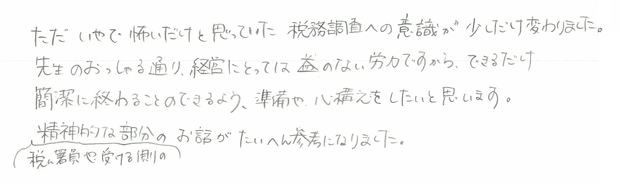 ただ いやで 怖いだけと思っていた 税務調査への意識が 少しだけ変わりました。
先生のおっしゃる通り、経営にとっては 益のない労力ですから、できるだけ
簡潔に終わることのできるよう、準備や 心構えをしたいと思います。
精神的な部分の お話が たいへん参考になりました。
税ム署員や受ける側の